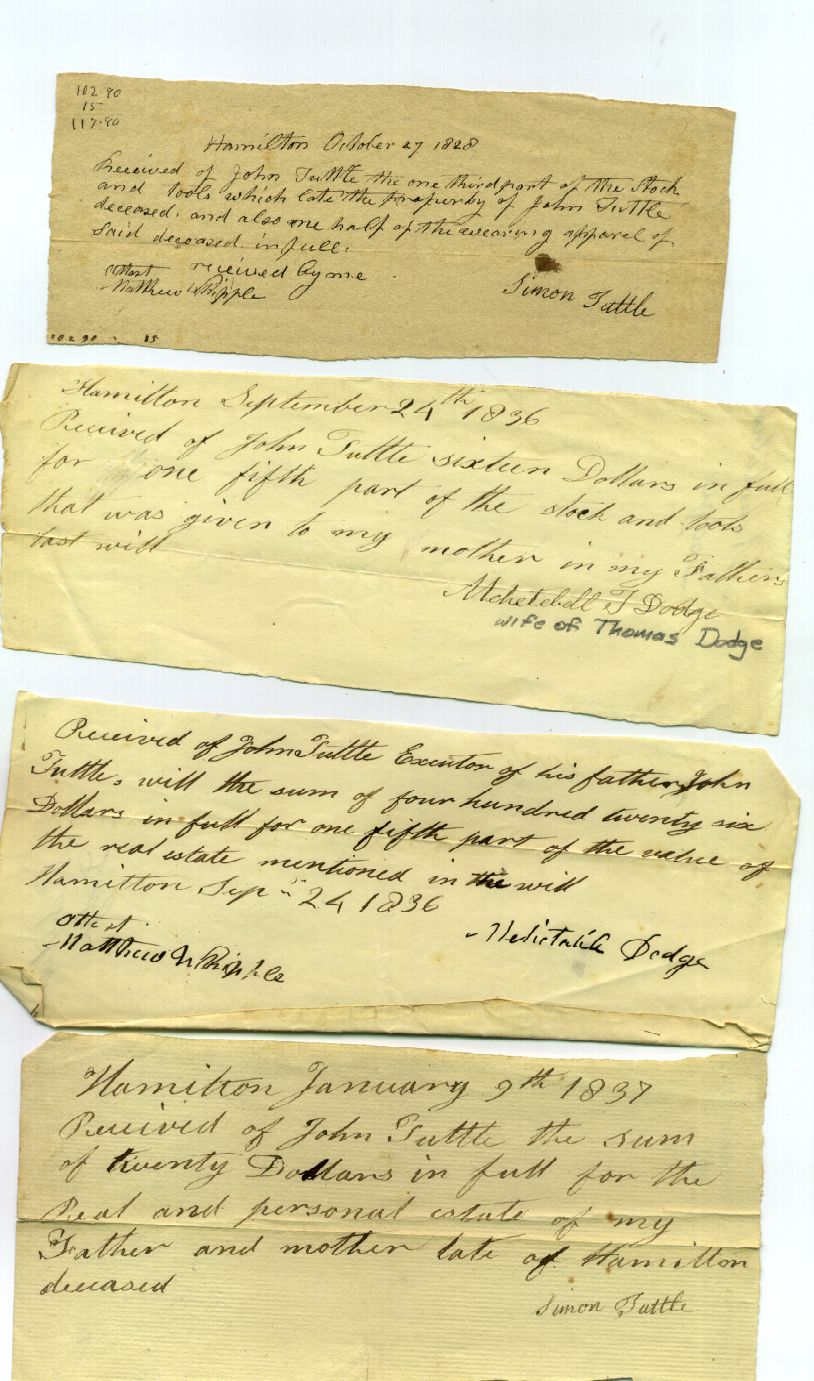 102.90
15
117.90
Hamilton October 27 1828
Received of John Tuttle the one third part of the Stock
and tools which late the propurty of John Tuttle
deceased. and also one half of the wearing apparel of
Said deceased in full.
received by me
attest
Matthew Whipple
Simon Tuttle
102 90 15
Hamilton September 24th 1836
Received of John Tuttle sixteen Dollars in full
for one fifth part of the stock and tools
that was given to my mother in my Fathers
last will
Mehetebell T Dodge
wife of Thomas Dodge
Received of John Tuttle Executor of his father John
Tuttle, will the sum of four hundred twenty six
Dollars in full for one fifth part of the value of
the real estate mentioned in the will
Hamilton Sep 24 1836
attest
Matthew Whipple
Dodge
Hamilton January 9th 1837
Received of John Tuttle the sum
of twenty Dollars in full for the
Real and personal estate of my
Father and mother late of Hamilton
deceased
Simon Tuttle